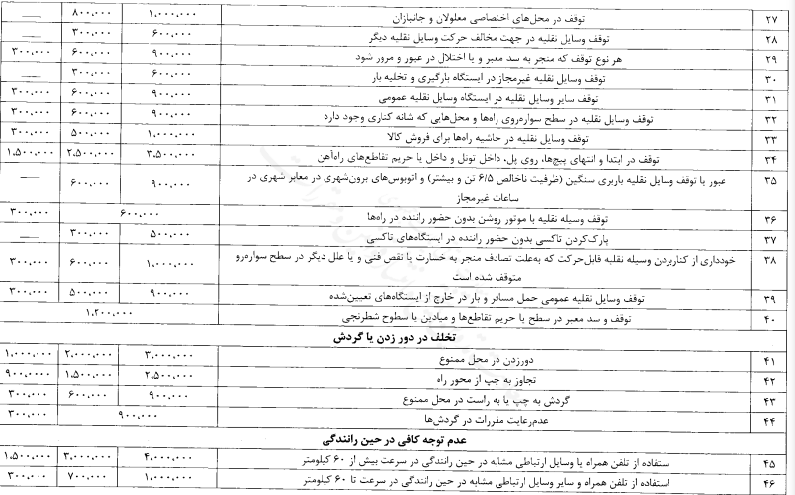 ۲۷ توقف در محل‌های اختصاصی معلولان و جانبازان ۱،۰۰۰،۰۰۰ ۸۰۰،۰۰۰ ——
۲۸ توقف وسایل نقلیه در جهت مخالف حرکت وسایل نقلیه دیگر ۶۰۰،۰۰۰ ۳۰۰،۰۰۰ ——
۲۹ هر نوع توقف که منجر به سد معبر و یا اختلال در عبور و مرور شود ۹۰۰،۰۰۰ ۶۰۰،۰۰۰ ۳۰۰،۰۰۰
۳۰ توقف وسایل نقلیه غیرمجاز در ایستگاه بارگیری و تخلیه بار ۶۰۰،۰۰۰ ۳۰۰،۰۰۰ ——
۳۱ توقف سایر وسایل نقلیه در ایستگاه وسایل نقلیه عمومی ۹۰۰،۰۰۰ ۶۰۰،۰۰۰ ۳۰۰،۰۰۰
۳۲ توقف وسایل نقلیه در سطح سواره‌روی راه‌ها و محل‌هایی که شانه کناری وجود دارد ۹۰۰،۰۰۰ ۶۰۰،۰۰۰ ۳۰۰،۰۰۰
۳۳ توقف وسایل نقلیه در حاشیه راه‌ها برای فروش کالا ۱،۰۰۰،۰۰۰ ۵۰۰،۰۰۰ ۳۰۰،۰۰۰
۳۴ توقف در ابتدا و انتهای پیچ‌ها، روی پل، داخل تونل و داخل یا حریم تقاطع‌های راه‌آهن ۳،۵۰۰،۰۰۰ ۲،۵۰۰،۰۰۰ ۱،۵۰۰،۰۰۰
۳۵ عبور یا توقف وسایل نقلیه باربری سنگین (ظرفیت ناخالص ۶/۵ تن و بیشتر) و اتوبوس‌های برون‌شهری در معابر شهری در ۹۰۰،۰۰۰ ۶۰۰،۰۰۰ ——
ساعات غیرمجاز
۳۶ توقف وسیله نقلیه با موتور روشن بدون حضور راننده در راه‌ها ۶۰۰،۰۰۰ ۳۰۰،۰۰۰
۳۷ پارک‌کردن تاکسی بدون حضور راننده در ایستگاه‌های تاکسی ۵۰۰،۰۰۰ ۳۰۰،۰۰۰ ——
۳۸ خودداری از کناربردن وسیله نقلیه قابل‌حرکت که به‌علت تصادف منجر به خسارت یا نقص فنی و یا علل دیگر در سطح سواره‌رو ۱،۰۰۰،۰۰۰ ۶۰۰،۰۰۰ ۳۰۰،۰۰۰
متوقف شده است
۳۹ توقف وسایل نقلیه عمومی حمل مسافر و بار در خارج از ایستگاه‌های تعیین‌شده ۹۰۰،۰۰۰ ۵۰۰،۰۰۰ ۳۰۰،۰۰۰
۴۰ توقف و سد معبر در سطح یا حریم تقاطع‌ها و میادین یا سطوح شطرنجی ۱،۲۰۰،۰۰۰
تخلف در دور زدن یا گردش
۴۱ دورزدن در محل ممنوع ۳،۰۰۰،۰۰۰ ۲،۰۰۰،۰۰۰ ۱،۰۰۰،۰۰۰
۴۲ تجاوز به چپ از محور راه ۲،۵۰۰،۰۰۰ ۱،۵۰۰،۰۰۰ ۹۰۰،۰۰۰
۴۳ گردش به چپ یا به راست در محل ممنوع ۹۰۰،۰۰۰ ۶۰۰،۰۰۰ ۳۰۰،۰۰۰
۴۴ عدم‌رعایت مقررات در گردش‌ها ۹۰۰،۰۰۰ ۳۰۰،۰۰۰
عدم توجه کافی در حین رانندگی
۴۵ ستفاده از تلفن همراه یا وسایل ارتباطی مشابه در حین رانندگی در سرعت بیش از ۶۰ کیلومتر ۴،۰۰۰،۰۰۰ ۳،۰۰۰،۰۰۰ ۱،۵۰۰،۰۰۰
۴۶ استفاده از تلفن همراه و سایر وسایل ارتباطی مشابه در حین رانندگی در سرعت تا ۶۰ کیلومتر ۱،۰۰۰،۰۰۰ ۷۰۰،۰۰۰ ۳۰۰،۰۰۰